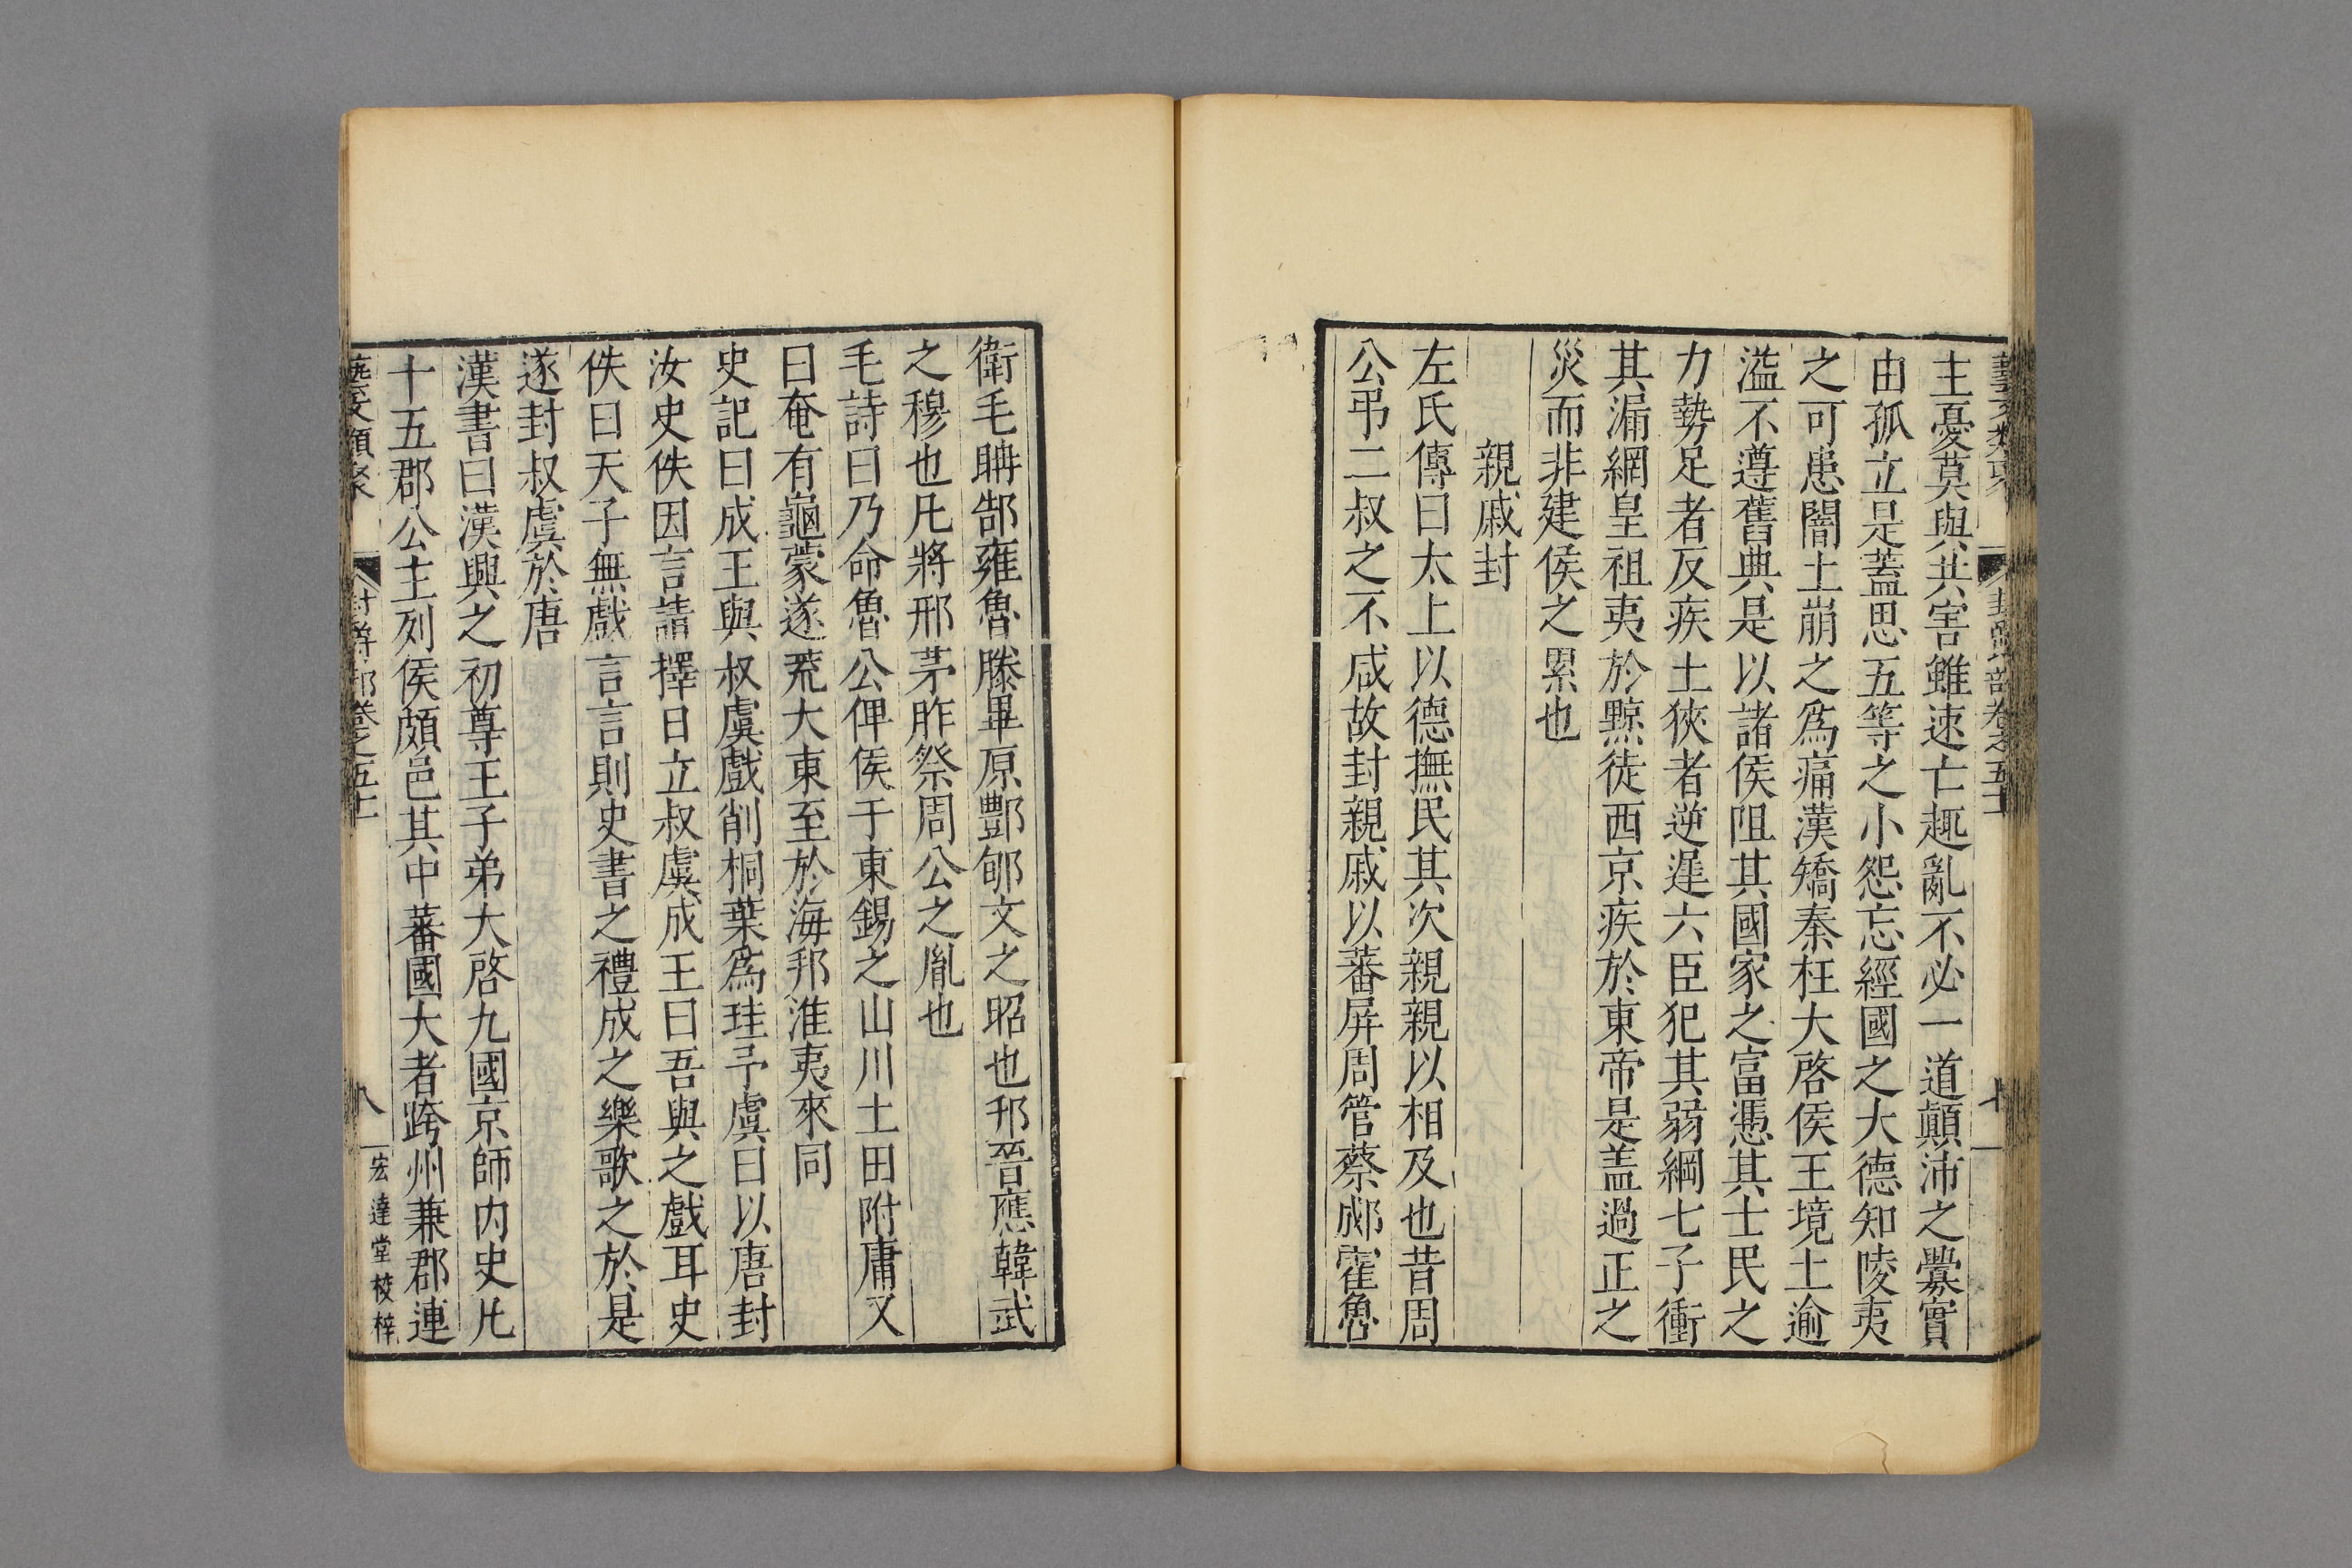 主憂莫與共害雖速亡趣亂不必一道顛沛之釁實
由孤立是蓋思五等之小怨忘經國之大德知陵夷
之可患闇土崩之爲痛漢矯秦枉大啓侯王境土逾
溢不遵舊典是以諸侯阻其國家之富憑其士民之
力勢足者反疾土狹者逆遲六臣犯其弱綱七子衝
其漏網皇祖夷於黥徒西京疾於東帝是盖過正之
災而非建侯之累也
親戚封
左氏傳曰太上以德撫民其次親親以相及也昔周
公弔二叔之不咸故封親戚以蕃屏周管蔡郕霍魯
衛毛聃郜雍魯滕畢原酆郇文之昭也邘晉應韓武
之穆也凡將邢茅胙祭周公之胤也
毛詩曰乃命魯公俾侯于東錫之山川土田附庸又
曰奄有龜蒙遂荒大東至於海邦淮夷來同
史記曰成王與叔虞戲削桐葉爲珪予虞曰以唐封
汝史佚因言請擇日立叔虞成王曰吾與之戲耳史
佚曰天子無戲言言則史書之禮成之樂歌之於是
遂封叔虞於唐
漢書曰漢興之初尊王子弟大啓九國京師内史凡
十五郡公主列侯頗邑其中蕃國大者跨州兼郡連
藝文類聚 封爵部卷之五十一 八 宏達堂校梓